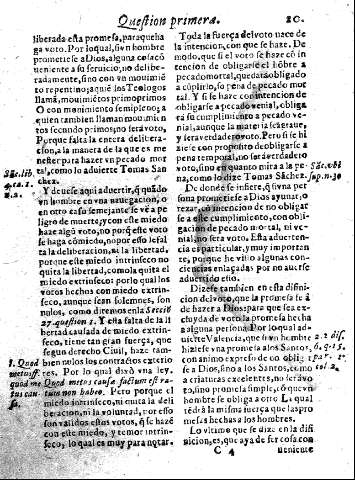 Question primera.
20.
liberada esta promesa, para que haga voto. Por lo qual, si vn hombre
prometiesse a Dios, alguna cosa cõ
ueniente a su seruicio, no deliberadamente, sino con vn mouimiẽ
to repentino; aqui ẽ los Teologos
llamã, mouimiẽtos primoprimos
O con mouimiento semejante; a
quien tambien llaman mouimien
tos secundo primos, no será voto,
Porque falta la entera deliberacion, a la manera de la que es me
nester para hazer vn pecado mortal, como lo aduierte Tomas San
chez.
Y deuese aqui aduertir, q̃ quãdo
vn hombre en vna nauegacion, o
en otro caso semejante se vè a peligro de muerte, y con este miedo
haze algũ voto, no porq̃ este voto
se haga cõ miedo, no por esso le fal
ta la deliberacion, ni la libertad,
porque este miedo intrinseco no
quita la libertad, como la quita el
miedo extrinseco: por lo qual los
votos hechos con miedo extrinseco, aunque sean solemnes, son
nulos,
27. question 1. Y esta falta de la li
bertad causada de miedo extrinseco, tiene tan gran fuerça, que
segun derecho Ciuil, haze tambien nulos los contractos exteriores. Por lo qual dixo vna ley,
Quod metus causa factum est ratum non habeo. Pero porque el
miedo intrinseco, ni quita la deliberacion, ni la voluntad, por esso
son validos estos votos, q̃ se hazẽ
con este miedo, y temor intrinseco, lo qual es muy para notar.
Sãc. lib.
4. ca. 1.
n. 2.
Toda la fuerça del voto nace de
la intencion, con que se haze. De
modo, que si el voto se haze cõ in
tencion de obligarse el hõbre a
pecado mortal, quedará obligado
a cũplirlo, so pena de pecado mor
tal. Y si se haze con intencion de
obligarse a pecado venial, obliga
rà su cumplimiento a pecado venial, aunque la materia sea graue,
y será verdadero voto. Pero si se hi
ziesse con proposito de obligarse a
pena temporal, no será verdadero
voto, sino en quanto mira a la pena, como lo dize Tomas Sãchez.
De donde se infiere, q̃ si vna per
sona prometiesse a Dios ayunar, o
rezar, con intencion de no obligarse a este cumplimiento, con obligacion de pecado mortal, ni venial, no será voto. Esta aduertencia es particular, y muy importante, porque he visto algunas conciencias enlaçadas por no auerse
aduertido esto.
Dizese tambien en esta difinicion del voto, que la promesa se à
de hazer a Dios para que se excluyda de voto la promesa hecha
a alguna persona. Por lo qual aduierte Valencia, que si vn hombre
hiziesse vna promesa a los Santos,
con animo expreso de no obligar
se a Dios, sino a los Santos, como
a criaturas excelentes, no será vo
to, sino promesa simple, o como si vn
hombre se obliga a otro. La qual
tẽdrà la misma fuerça que las promesas hechas a los hombres.
Lo vltimo que se dize en la difinicion, es, que aya de ser cosa con
Sãc. vbi
sup. n. 30
C 4
ueniente